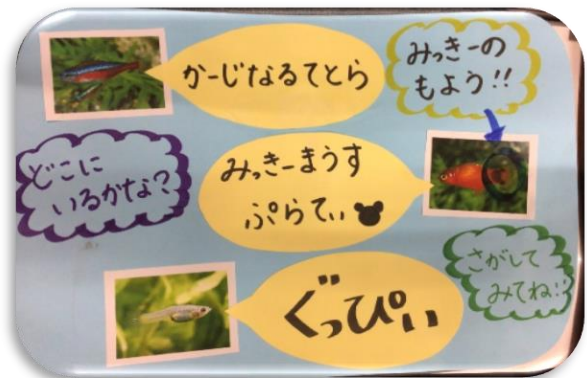 かーじなるてとら
みっきーの
もよう!!
どこに
いるかな?
みっきーまうす
ぷらてぃ
さがして
みてね!!
ぐっぴぃ